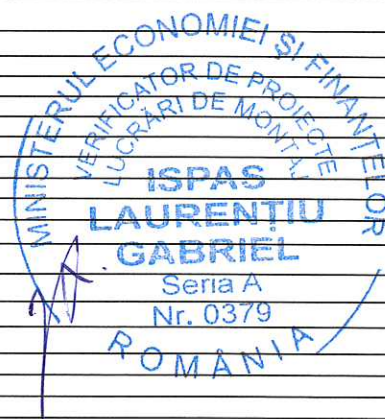 MINISTERUL ECONOMIEI ȘI FINANȚELOR
VERIFICATOR DE PROIECTE
LUCRĂRI DE MONTAJ
ISPAS
LAURENȚIU
GABRIEL
Seria A
Nr. 0379
ROMÂNIA